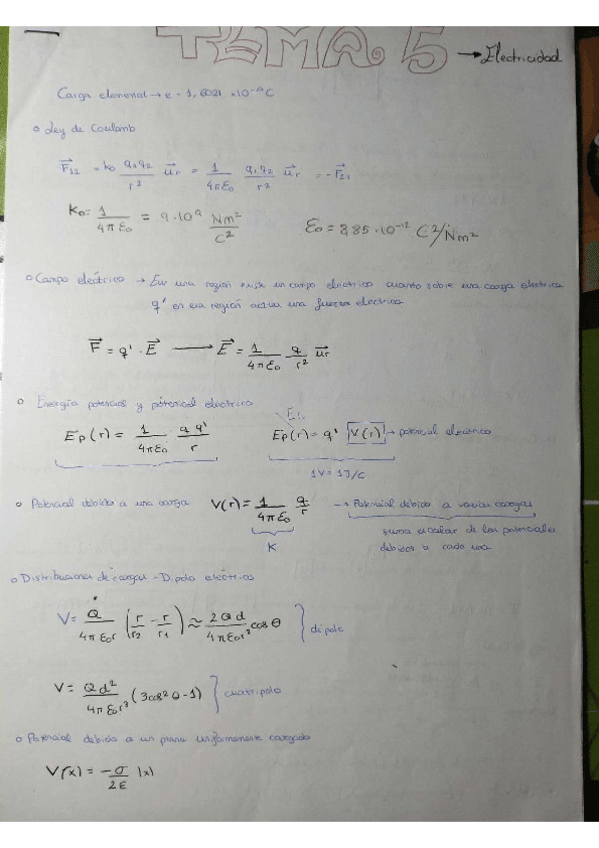 TEMA 5 → Electricidad
Carga elemental → e = 1,6021 × 10⁻¹⁹ C
o Ley de Coulomb
F⃗₁₂ = k₀ q₁q₂/r² u⃗r = 1/4πε₀ q₁q₂/r² u⃗r = -F⃗₂₁
K₀ = 1/4πε₀ = 9·10⁹ Nm²/C² ε₀ = 8,85·10⁻¹² C²/Nm²
o Campo eléctrico → En una región existe un campo electrico cuando sobre una carga electrica
q' en esa región actua una fuerza electrica
F⃗ = q' · E⃗ → E⃗ = 1/4πε₀ q/r² u⃗r
o Energía potencial y potencial electrico
Ep(r) = 1/4πε₀ q q'/r Ep(r) = q' V(r) → potencial electrico
1V = 1J/C
o Potencial debido a una carga V(r) = 1/4πε₀ q/r → Potencial debido a varias cargas
K
suma escalar de los potenciales
debidos a cada una
o Distribuciones de cargas - Dipolo eléctrico
V = Q/4πε₀r (r/r₂ - r/r₁) ≈ 2Qd/4πε₀r² cos θ } dipolo
V = Qd²/4πε₀r³ (3cos²θ-1) } cuatripolo
o Potencial debido a un plano uniformemente cargado
V(x) = -σ/2ε |x|